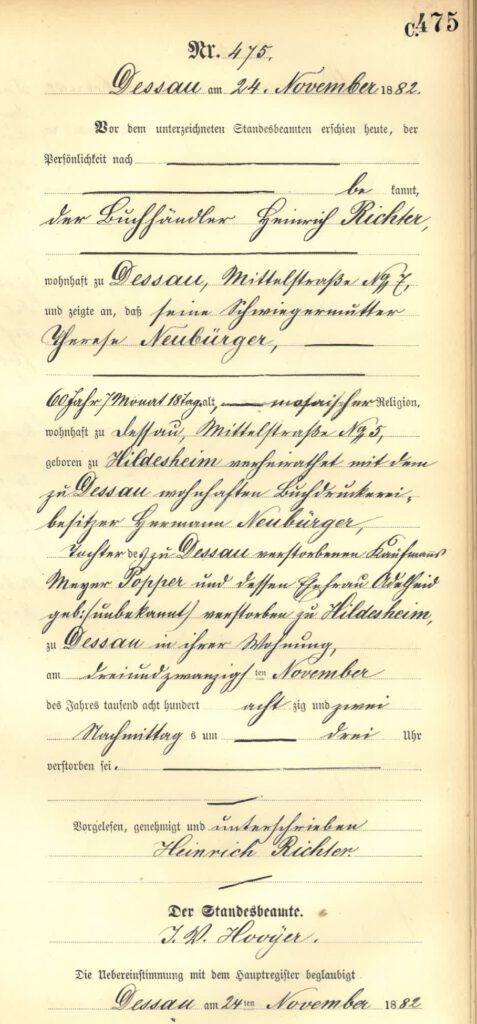 C.475
Nr. 475.
Dessau am 24. November 1882.
Vor dem unterzeichneten Standesbeamten erschien heute, der
Persönlichkeit nach
be kannt,
der Buchhändler Heinrich Richter,
wohnhaft zu Dessau, Mittelstraße No 7,
und zeigte an, daß seine Schwiegermutter
Therese Neubürger,
60 Jahr 7 Monat 18 Tag alt, mosaischer Religion,
wohnhaft zu Dessau, Mittelstraße No 5,
geboren zu Hildesheim verheirathet mit dem
zu Dessau wohnhaften Buchdruckerei-
besitzer Hermann Neubürger,
Tochter des zu Dessau verstorbenen Kaufmanns
Meyer Popper und dessen Ehefrau Adelheid
geb: (unbekannt) verstorben zu Hildesheim,
zu Dessau in ihrer Wohnung,
am dreiundzwanzigs ten November
des Jahres tausend acht hundert acht zig und zwei
Nachmittag s um drei Uhr
verstorben sei.
Vorgelesen, genehmigt und unterschrieben
Heinrich Richter.
Der Standesbeamte.
J. V. Hooÿer.
Die Uebereinstimmung mit dem Hauptregister beglaubigt
Dessau am 24 ten November 1882